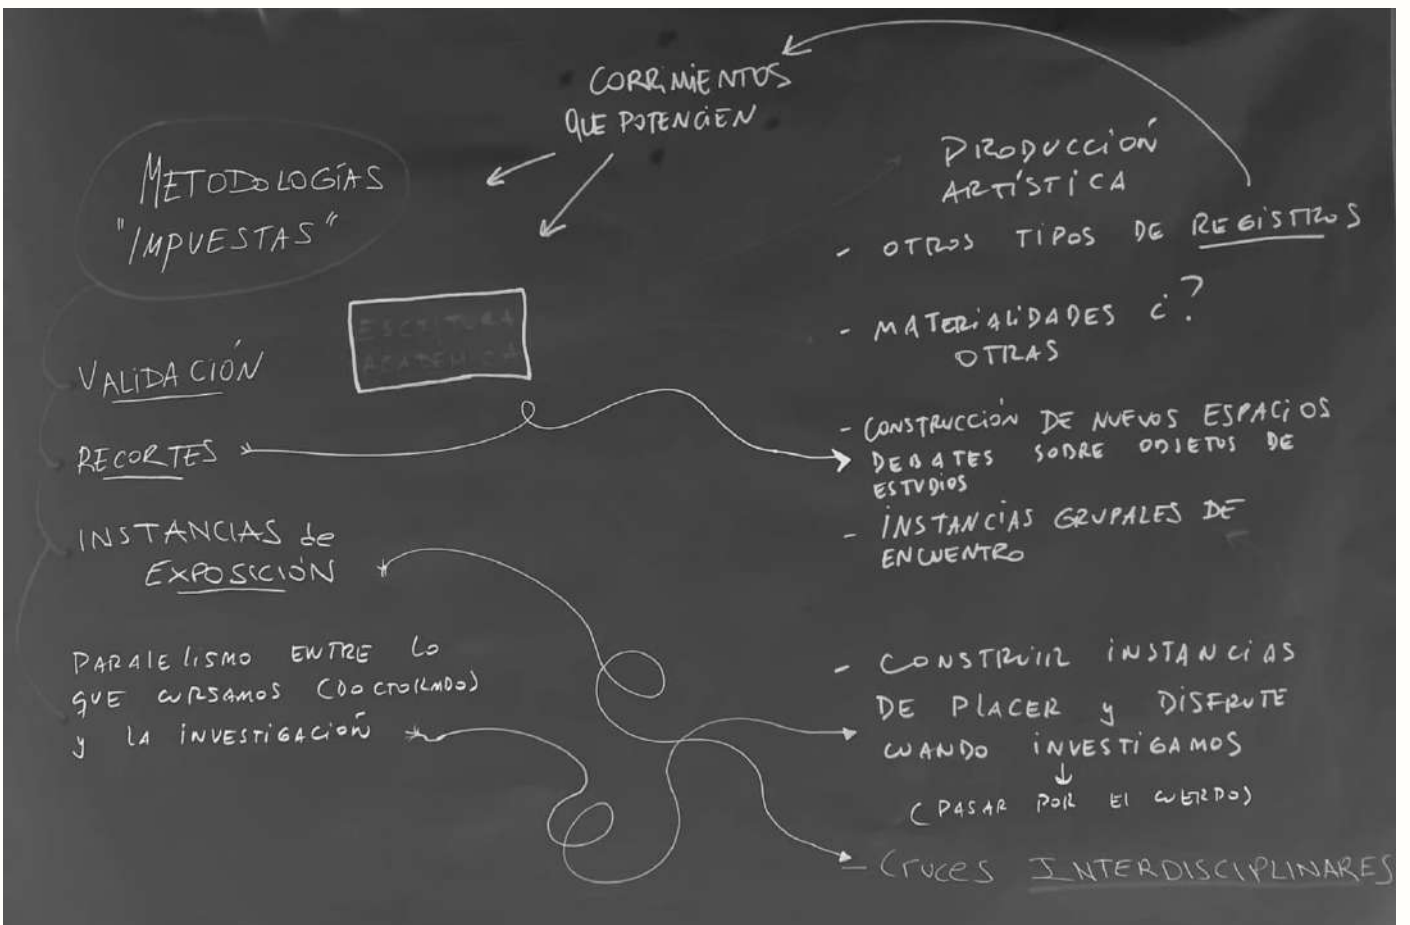 CORRIMIENTOS
QUE POTENCIEN
METODOLOGÍAS
"IMPUESTAS"
ESCRITURA
ACADEMICA
VALIDACIÓN
RECORTES
INSTANCIAS de
EXPOSICIÓN
PARALELISMO ENTRE LO
QUE CURSAMOS (DOCTORADO)
y LA INVESTIGACIÓN
PRODUCCIÓN
ARTÍSTICA
- OTROS TIPOS DE REGISTROS
- MATERIALIDADES ¿?
OTRAS
- CONSTRUCCIÓN DE NUEVOS ESPACIOS
DEBATES SOBRE OBJETOS DE
ESTUDIOS
- INSTANCIAS GRUPALES DE
ENCUENTRO
- CONSTRUIR INSTANCIAS
DE PLACER y DISFRUTE
CUANDO INVESTIGAMOS
(PASAR POR El CUERPO)
- Cruces INTERDISCIPLINARES